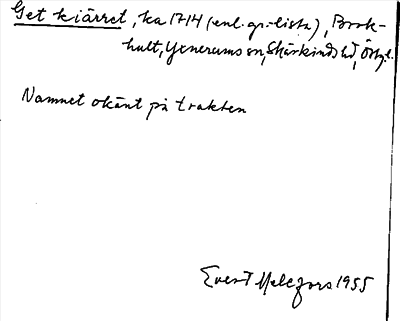 Get kiärret, ka 1714 (enl. gr.-lista), Brok-
hult, Yxnerums sn, Skärkinds hd, Östg.
Namnet okänt på trakten
Evert Melefors 1955